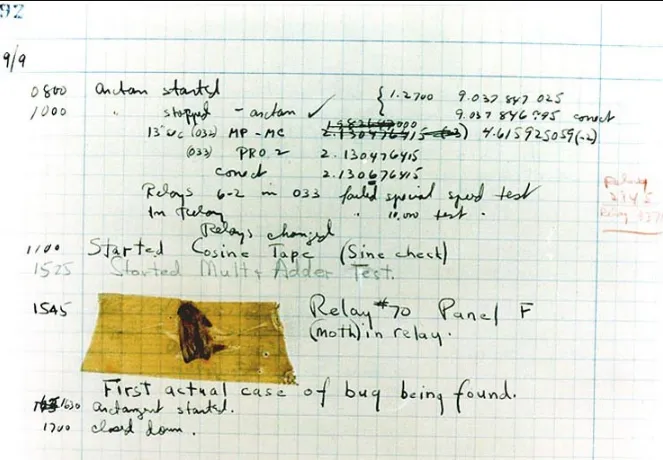 92
9/9
0800 arctan started { 1.2700 9.037 847 025
1000 " stopped - arctan ✓ 9.037 846 995 correct
13"uc (032) MP - MC 1.982647000 2.130476415 (-3) 4.615925059(-2)
(033) PRO 2 2.130476415
correct 2.130676415
Relays 6-2 in 033 failed special speed test
In Relay " 10,000 test .
Relays changed
1100 Started Cosine Tape (Sine check)
1525 Started Mult + Adder Test.
1545 Relay #70 Panel F
(moth) in relay.
First actual case of bug being found.
1630 arctangent started.
1700 closed down .
Relay
2145
Relay 3370